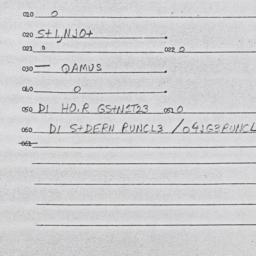 010 0
020 S+1,NJO+
021 0 022 0
030 — QAMUS
040 0
050 D1 HO,R GS+N2T23 051 0
060 D1 S+DERN RUNCL3 /O4JG3RUNCL
061